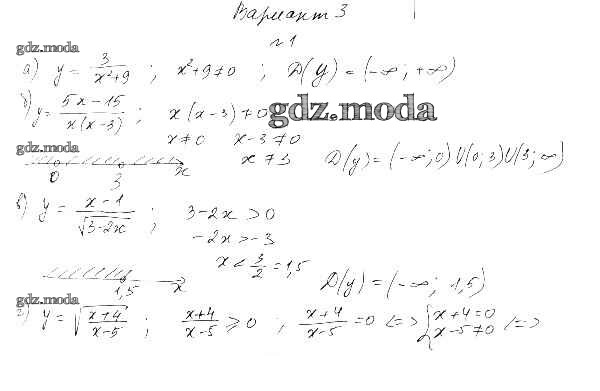 Вариант 3
№1
gdz.moda
а) y = 3/(x²+9) ; x²+9≠0 ; D(y) = (-∞; +∞)
б) y = (5x-15)/(x(x-3)) ; x(x-3)≠0
gdz.moda
x≠0 x-3≠0
gdz.moda
x≠3 D(y) = (-∞; 0)U(0; 3)U(3; ∞)
0 3 x
в) y = (x-1)/√(3-2x) ; 3-2x>0
-2x>-3
x<3/2=1,5
1,5 x D(y) = (-∞; 1,5)
gdz.moda
г) y = √((x+4)/(x-5)) ; (x+4)/(x-5) ≥ 0 ; (x+4)/(x-5) = 0 <=> { x+4=0 x-5≠0 <=>